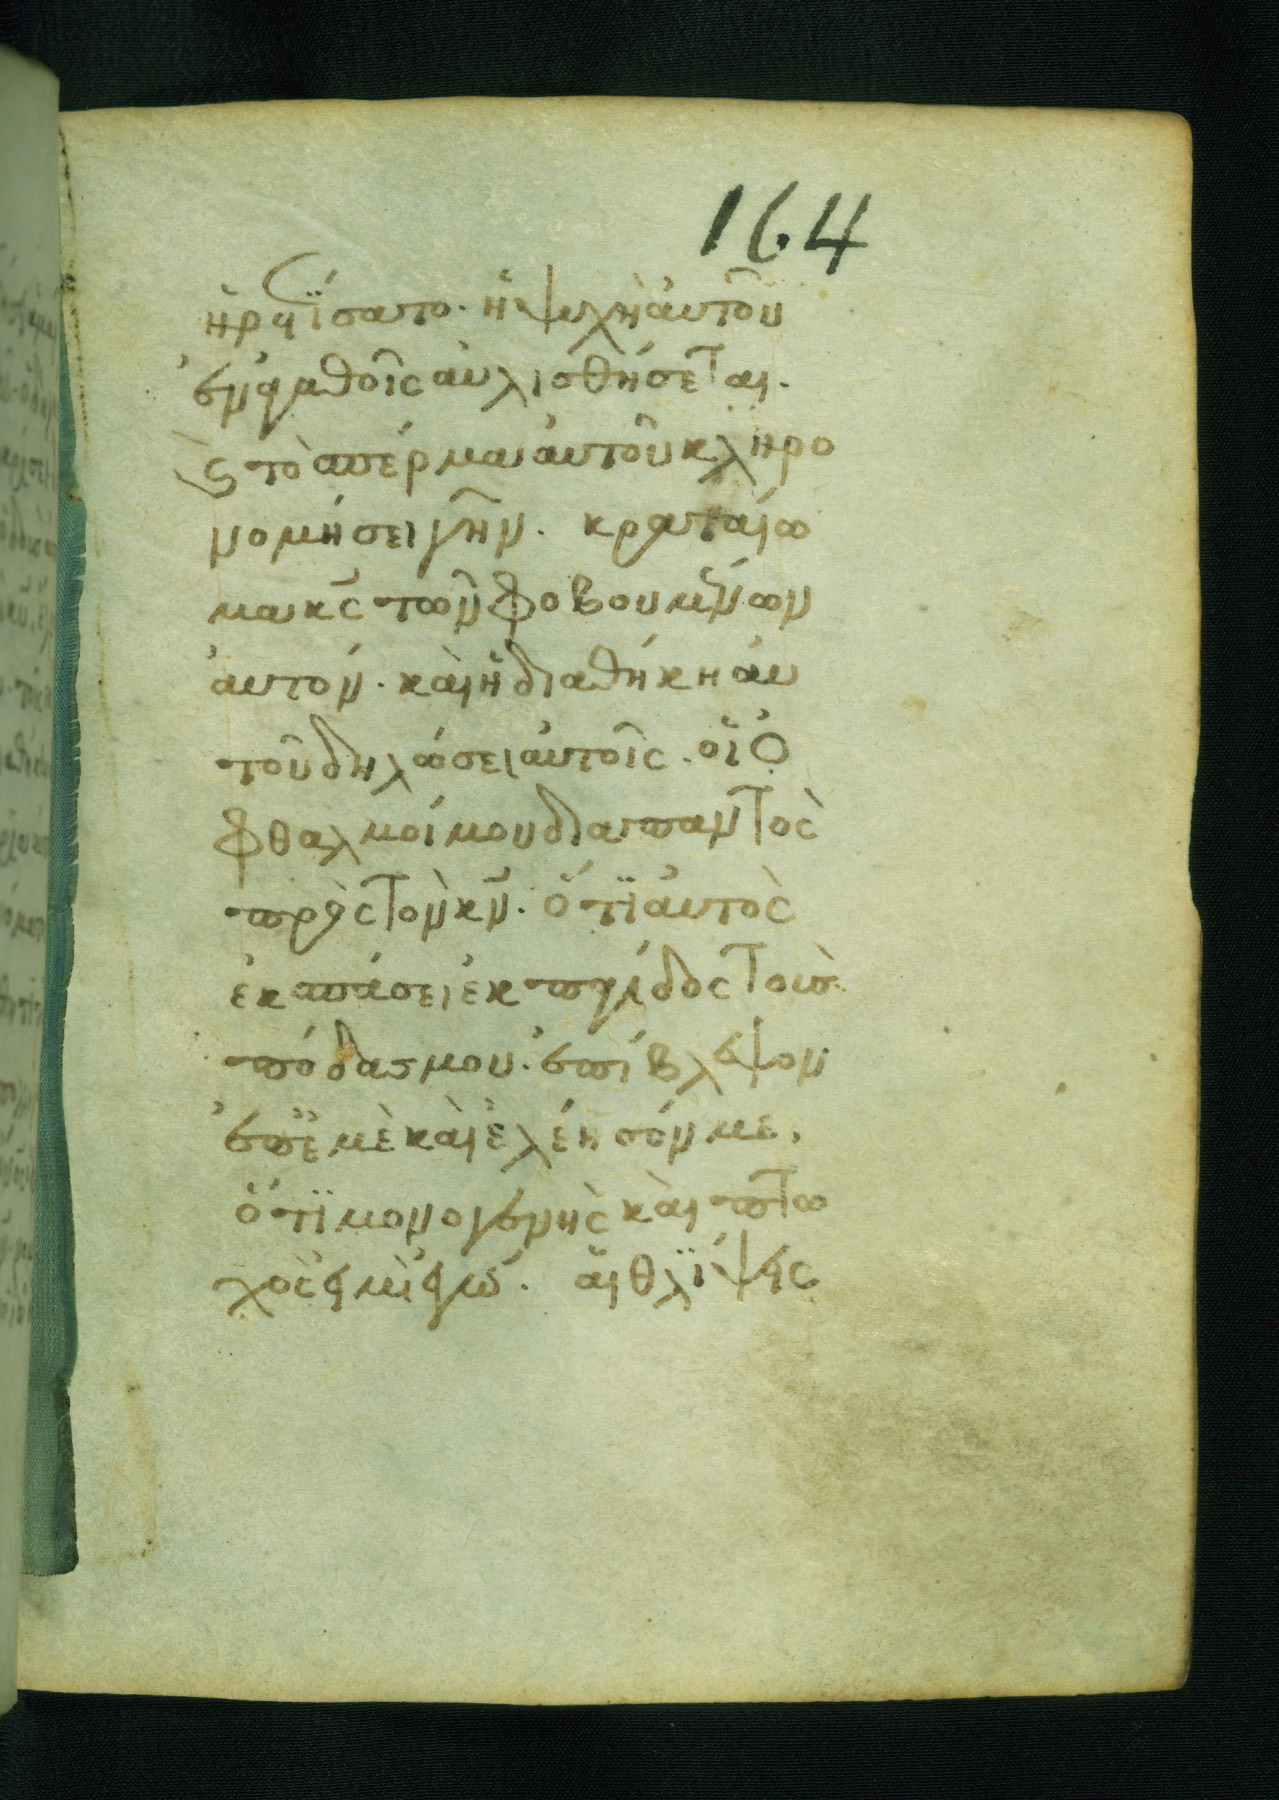 164
ἡρετίσατο· ἡ ψυχὴ ἀυτοῦ
ἐν ἀγαθοῖς ἀυλισθήσεται·
ϛ τὸ σπέρμα ἀυτοῦ κληρο
νομήσει γῆν· κραταίω
μα κ̅ς̅ τῶν φοβουμένων
ἀυτόν· καὶ ἡ διαθήκη ἀυ
τοῦ δηλώσει ἀυτοῖς· οἱ ὀ
φθαλμοί μου διαπαντὸς
πρὸς τὸν κ̅ν̅· ὅτϊ ἀυτὸς
ἐκσπάσει ἐκ παγίδος τοὺς
πόδας μου· ἐπίβλεψον
ἐπεμὲ καὶ ἐλέησόν με,
ὅτϊ μονογενὴς καὶ πτω
χὸς εἰμὶ ἐγώ· αἱ θλΐψεις